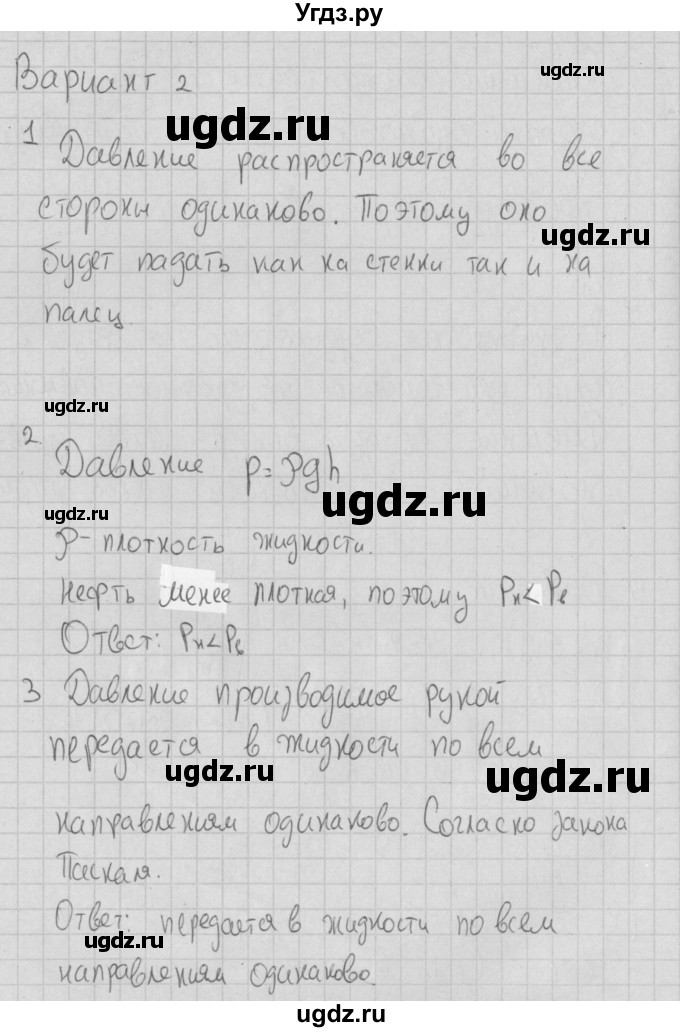 Угдз.ру
Вариант 2
ugdz.ru
ugdz.ru
1 Давление распространяется во все
стороны одинаково. Поэтому оно
ugdz.ru
будет падать как на стенки так и на
палец
ugdz.ru
2. Давление p = ρgh
ugdz.ru
ugdz.ru
ρ - плотность жидкости.
Нефть менее плотная, поэтому Pн < Pв
Ответ: Pн < Pв
ugdz.ru
3 Давление производимое рукой
передается в жидкости по всем
ugdz.ru
ugdz.ru
направлениям одинаково. Согласно закона
Паскаля.
Ответ: передается в жидкости по всем
ugdz.ru
направлениям одинаково.
ugdz.ru